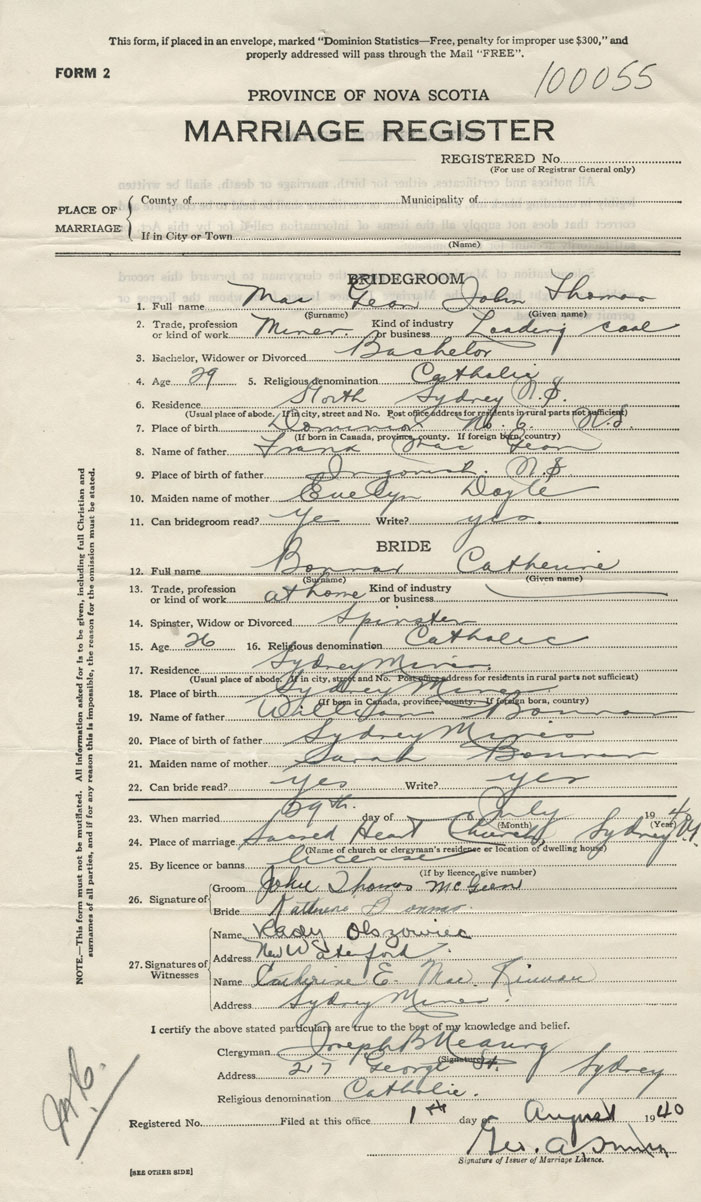 This form, if placed in an envelope, marked "Dominion Statistics—Free, penalty for improper use $300," and
properly addressed will pass through the Mail "FREE".
FORM 2
100055
PROVINCE OF NOVA SCOTIA
MARRIAGE REGISTER
REGISTERED No.
(For use of Registrar General only)
PLACE OF MARRIAGE
County of Municipality of
If in City or Town
(Name)
BRIDEGROOM
1. Full name Mac Geon John Thomas
(Surname) (Given name)
2. Trade, profession or kind of work Miner Kind of industry or business Loading coal
3. Bachelor, Widower or Divorced Bachelor
4. Age 29 5. Religious denomination Catholic
6. Residence North Sydney N.S.
(Usual place of abode. If in city, street and No. Post office address for residents in rural parts not sufficient)
7. Place of birth Dominion No. 6. N.S.
(If born in Canada, province, county. If foreign born, country)
8. Name of father Frank Mac Geon
9. Place of birth of father Ingonish. N.S
10. Maiden name of mother Evelyn Doyle
11. Can bridegroom read? Ye Write? yes.
BRIDE
12. Full name Bonnar Catherine
(Surname) (Given name)
13. Trade, profession or kind of work at home Kind of industry or business
14. Spinster, Widow or Divorced Spinster
15. Age 26 16. Religious denomination Catholic
17. Residence Sydney Mines
(Usual place of abode. If in city, street and No. Post office address for residents in rural parts not sufficient)
18. Place of birth Sydney Mines
(If born in Canada, province, county. If foreign born, country)
19. Name of father William Bonnar
20. Place of birth of father Sydney Mines
21. Maiden name of mother Sarah Bonnar
22. Can bride read? yes Write? yes
23. When married 29th. day of July 194
(Month) (Year)
24. Place of marriage Sacred Heart Church, Sydney N.S.
(Name of church or clergyman's residence or location of dwelling house)
25. By licence or banns license
(If by licence, give number)
26. Signature of
Groom John Thomas McGeon
Bride Katherine Bonnar
27. Signatures of Witnesses
Name Kady Olszowiec
Address New Waterford
Name Catherine E. Mac Kinnon
Address Sydney Mines
I certify the above stated particulars are true to the best of my knowledge and belief.
Clergyman Joseph B
(Signature)
Address 217 George St. Sydney
Religious denomination Catholic.
Registered No. Filed at this office 1st day of August 1940
Geo. A. Smith
Signature of Issuer of Marriage Licence.
[SEE OTHER SIDE]
NOTE.—This form must not be mutilated. All information asked for is to be given, including full Christian and
surnames of all parties, and if for any reason this is impossible, the reason for the omission must be stated.